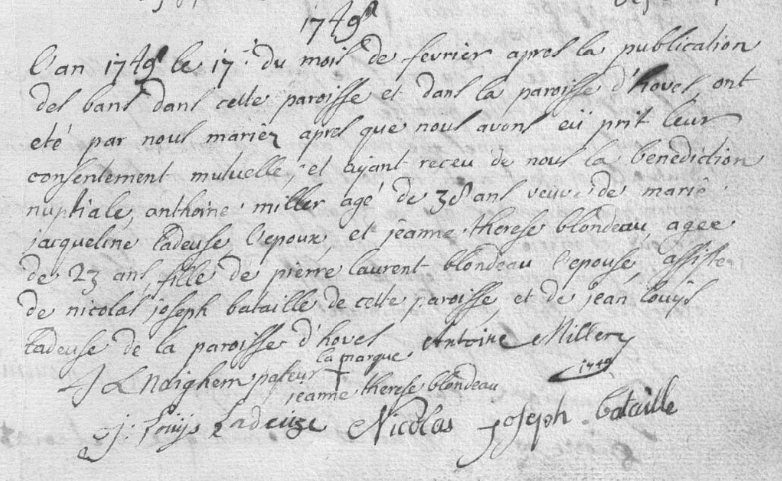 1749
L'an 1749 le 17e du mois de fevrier apres la publication
des bans dans cette paroisse et dans la paroisse d'hoves, ont
eté par nous mariez apres que nous avons eü prit leur
consentement mutuelle, et ayant receu de nous la benediction
nuptiale, anthoine miller agé de 38 ans veuve de marie
jacqueline Ladeuse l'epoux, et jeanne therese blondeau, agee
de 23 ans, fille de pierre laurent blondeau l'epouse, assistez
de nicolas joseph bataille de cette paroisse, et de jean louijs
Ladeuse de la paroisse d'hoves Antoine Miller
pasteur la marque 1749
jeanne therese blondeau
j: Louijs Ladeuze Nicolas joseph bataille